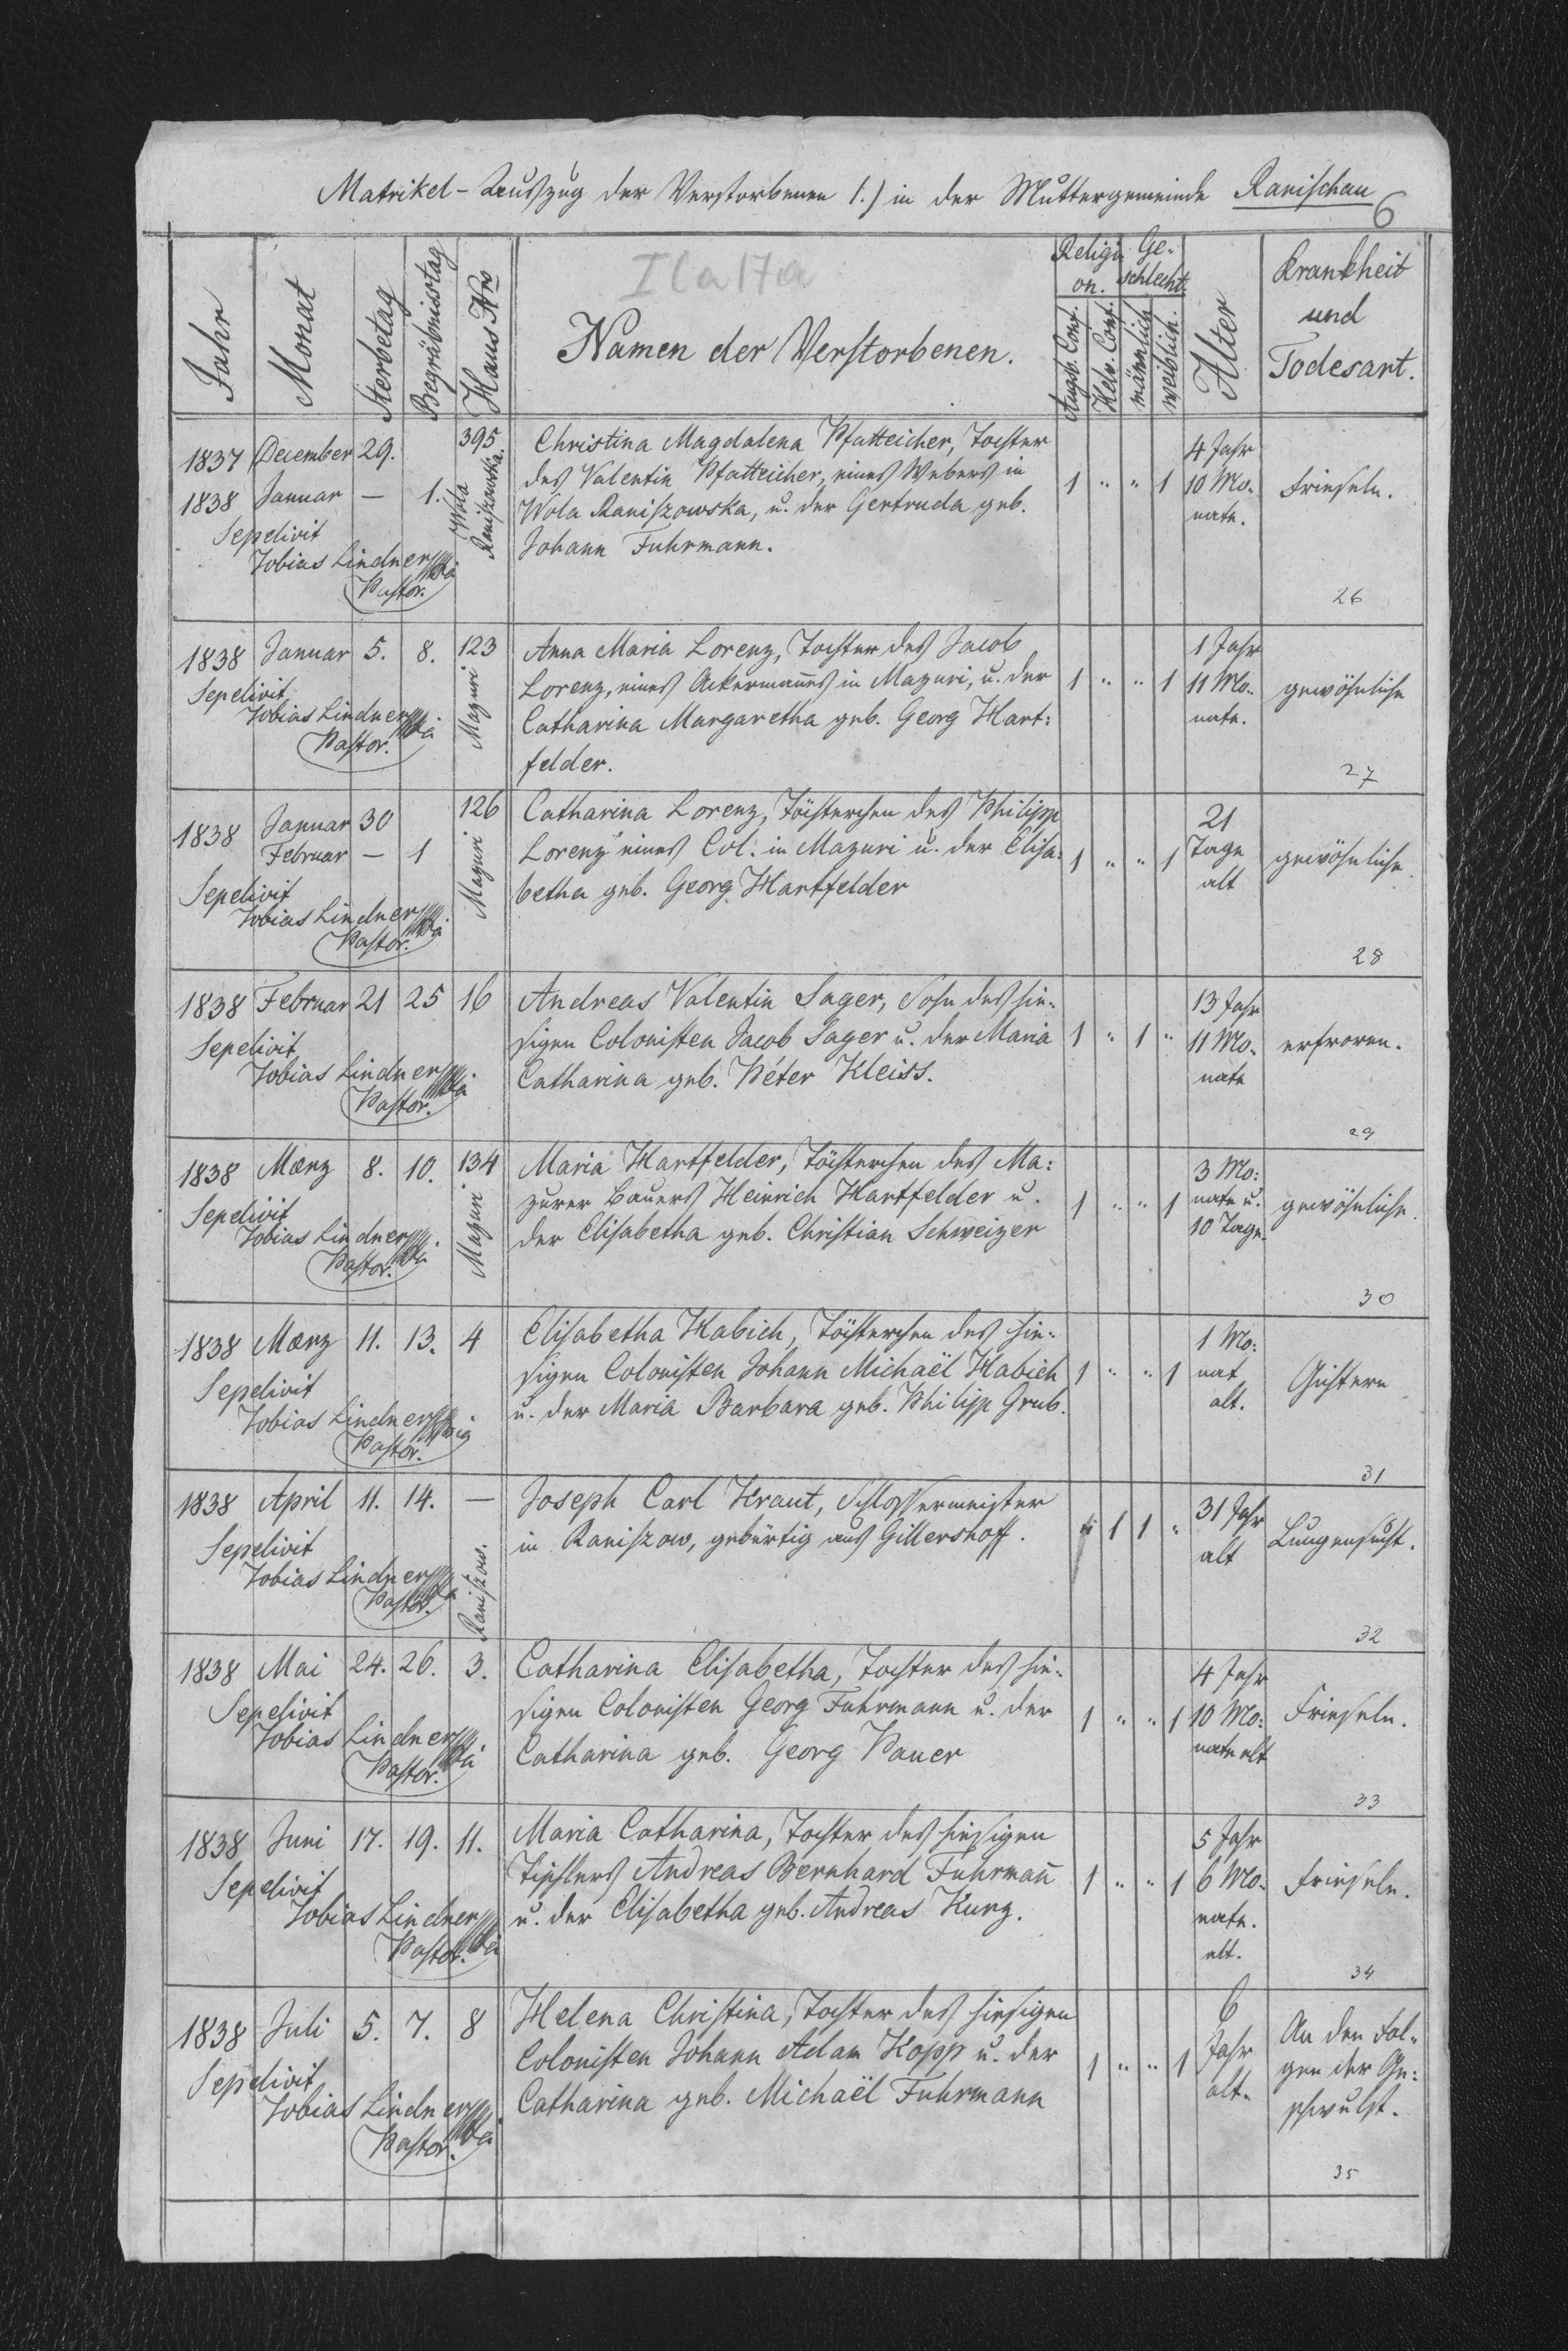 Matrikel-Auszug der Verstorbenen 1.) in der Muttergemeinde Ranischau
6
I (a 17a
Jahr
Monat
Sterbetag
Begräbnisstag
Haus Nro
Namen der Verstorbenen.
Religi
on.
Augsb. Conf.
Helv. Conf.
Ge-
schlecht
männlich
weiblich.
Alter
Krankheit
und
Todesart.
1837 December 29.
1838 Januar — 1.
395
Wola
Raniszowska.
Sepelivit
Tobias Lindner
Pastor.
Christina Magdalena Pfatteicher, Tochter
des Valentin Pfatteicher, eines Webers in
Wola Raniszowska, u. der Gertruda geb.
Johann Fuhrmann.
1 " " 1
4 Jahr
10 Mo-
nate.
Frieseln.
26
1838 Januar 5. 8. 123
Mazuri
Sepelivit
Tobias Lindner
Pastor.
Anna Maria Lorenz, Tochter des Jacob
Lorenz, eines Ackermanns in Mazuri, u. der
Catharina Margaretha geb. Georg Hart:
felder.
1 " " 1
1 Jahr
11 Mo-
nate.
gewöhnliche
27
1838 Januar 30
Februar — 1
126
Mazuri
Sepelivit
Tobias Lindner
Pastor.
Catharina Lorenz, Töchterchen des Philipp
Lorenz eines Col. in Mazuri u. der Elisa:
betha geb. Georg Hartfelder
1 " " 1
21
Tage
alt
gewöhnliche.
28
1838 Februar 21 25 16
Sepelivit
Tobias Lindner
Pastor.
Andreas Valentin Sager, Sohn des hie-
sigen Colonisten Jacob Sager u. der Maria
Catharina geb. Péter Kleiss.
1 " 1 "
13 Jahr
11 Mo-
nate
erfroren.
29
1838 Mærz 8. 10. 134
Mazuri
Sepelivit
Tobias Lindner
Pastor.
Maria Hartfelder, Töchterchen des Ma:
zurer Bauers Heinrich Hartfelder u.
der Elisabetha geb. Christian Schweizer
1 " " 1
3 Mo:
nate u.
10 Tage.
gewöhnliche.
30
1838 Mærz 11. 13. 4
Sepelivit
Tobias Lindner
Pastor.
Elisabetha Habich, Töchterchen des hie-
sigen Colonisten Johann Michaël Habich
u. der Maria Barbara geb. Philipp Grub.
1 " " 1
1 Mo:
nat
alt.
31
1838 April 11. 14. —
Raniszow.
Sepelivit
Tobias Lindner
Pastor.
Joseph Carl Kraut, Schlossermeister
in Raniszow, gebürtig aus Gillershoff.
" 1 1 "
31 Jahr
alt
Lungensucht.
32
1838 Mai 24. 26. 3.
Sepelivit
Tobias Lindner
Pastor.
Catharina Elisabetha, Tochter des hie-
sigen Colonisten Georg Fuhrmann u. der
Catharina geb. Georg Pauer
1 " " 1
4 Jahr
10 Mo:
nate alt
Frieseln.
33
1838 Juni 17. 19. 11.
Sepelivit
Tobias Lindner
Pastor.
Maria Catharina, Tochter des hiesigen
Tischlers Andreas Bernhard Fuhrmañ
u. der Elisabetha geb. Andreas Kurz.
1 " " 1
5 Jahr
6 Mo-
nate.
alt.
Frieseln.
34
1838 Juli 5. 7. 8
Sepelivit
Tobias Lindner
Pastor.
Helena Christina, Tochter des hiesigen
Colonisten Johann Adam Kopp u. der
Catharina geb. Michaël Fuhrmann
1 " " 1
6
Jahr
alt.
An den Fol-
gen der Ge:
schwulst.
35